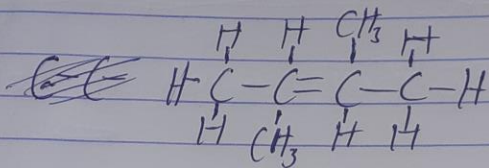 H H CH3 H
H-C-C=C-C-H
H CH3 H H